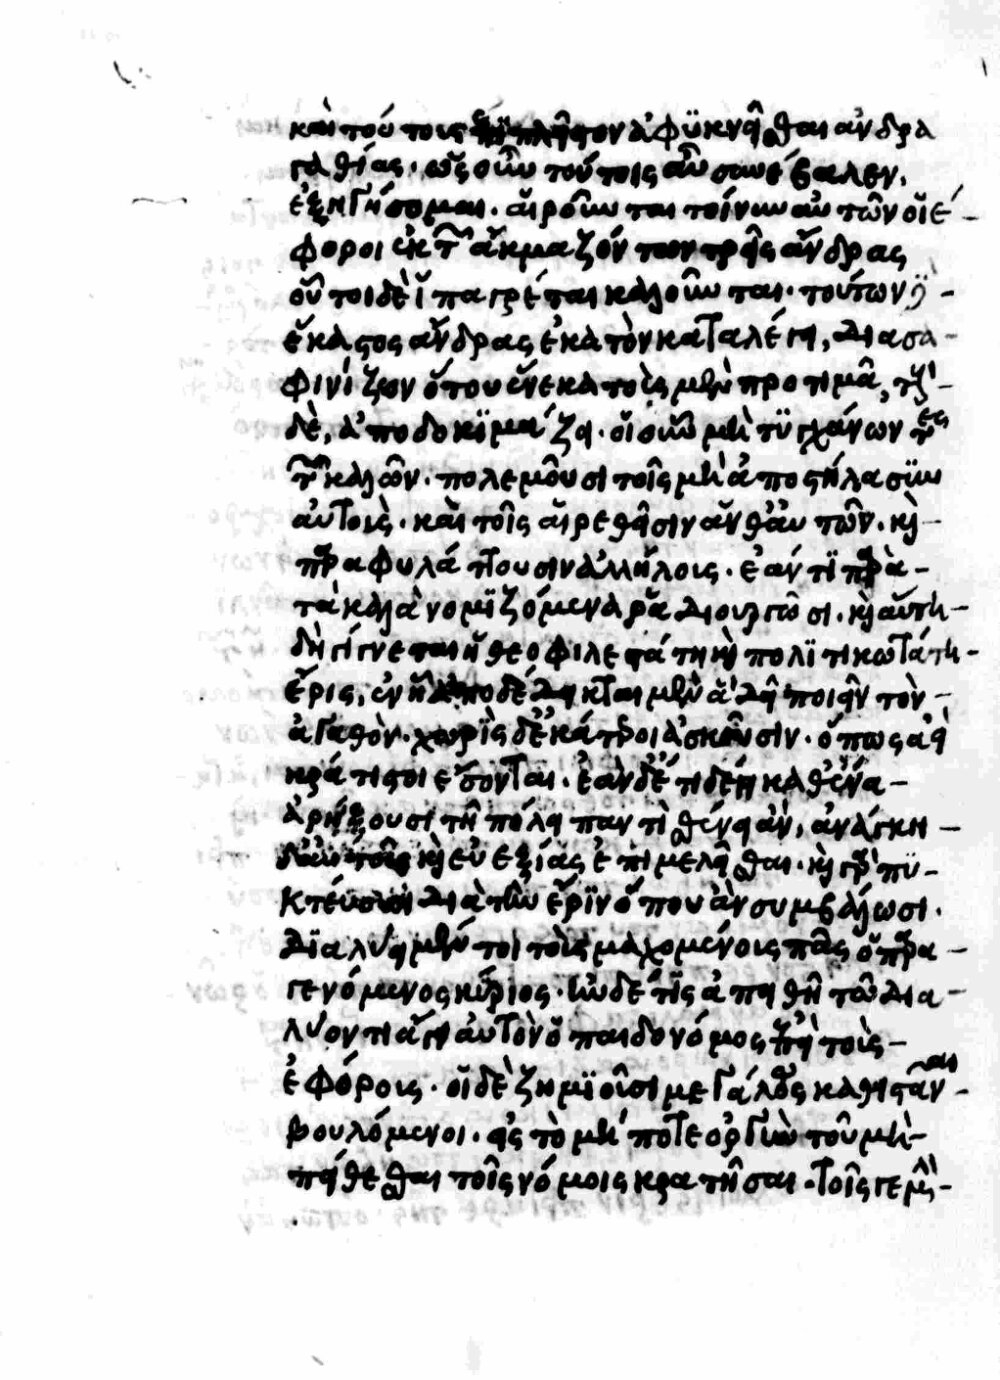 καὶ τούτους ἐπὶ πλῆστον ἀφϋκνῆσθαι ἀνδρα
γαθίας. ὡς οὖν τούτοις αὖ συνέβαλεν,
ἐξηγήσομαι. αἱροῦνται τοίνυν αὐτῶν οἱ ἔ-
φοροι ἐκ τῶν ἀκμαζόντων τρῆς ἄνδρας
οὗτοι δὲ ἱππαγρέται καλοῦνται. τούτων δ'-
ἕκαστος ἄνδρας ἑκατὸν καταλέγη, διασα-
φινίζων ὅτου ἕνεκα τοὺς μὲν προτιμᾶ, τοὺς-
δὲ, ἀποδοκϊμάζη. οἱ οὖν μὴ τϋγχάνοντες
τῶν καλῶν. πολεμοῦσι τοῖς μὴ ἀποστήλασϊν
αὐτοὺς. καὶ τοῖς αἱρεθῆσιν ἀνθ' αὐτῶν. καὶ-
παραφυλάττουσιν ἀλλήλοις. ἐάν τϊ παρὰ-
τὰ καλὰ νομϊζόμενα ῥαδιουργῶσι. καὶ αὕτη-
δὴ γίγνεται ἡ θεοφιλεστάτη καὶ πολϊτικωτάτη-
ἔρις, ἐν ᾗ ἀποδέδηκται μὲν ἃ δῆ ποιῆν τὸν-
ἀγαθὸν. χωρὶς δ' ἑκάτεροι ἀσκοῦσιν. ὅπως ἀεὶ
κράτιστοι ἔσονται. ἐὰν δέ τι δέη καθ' ἕνα-
ἀρήξουσι τῇ πόλη παντὶ σθένη ἀν, ἀνάγκη-
δ' αὐτοῖς καὶ εὐεξίας ἐπιμελῆσθαι. καὶ γὰρ πϋ-
κτεύουσι διὰ τὴν ἔρϊν ὅπου ἂν συμβάλωσι.
διαλύη μέντοι τοὺς μαχομένους πᾶς ὁ παρα-
γενόμενος κύριος. ἢν δέ τϊς ἀπηθῇ τῷ δια-
λύοντι ἄγη αὐτὸν ὁ παιδονόμος ἐπὶ τοὺς-
ἐφόρους. οἱ δὲ ζημϊοῦσι μεγάλως καθιστάναι-
βουλόμενοι. ἐς τὸ μή ποτε ὀργὴν τοῦ μὴ-
πήθεσθαι τοῖς νόμοις κρατῆσαι. τοῖς γε μὴν-